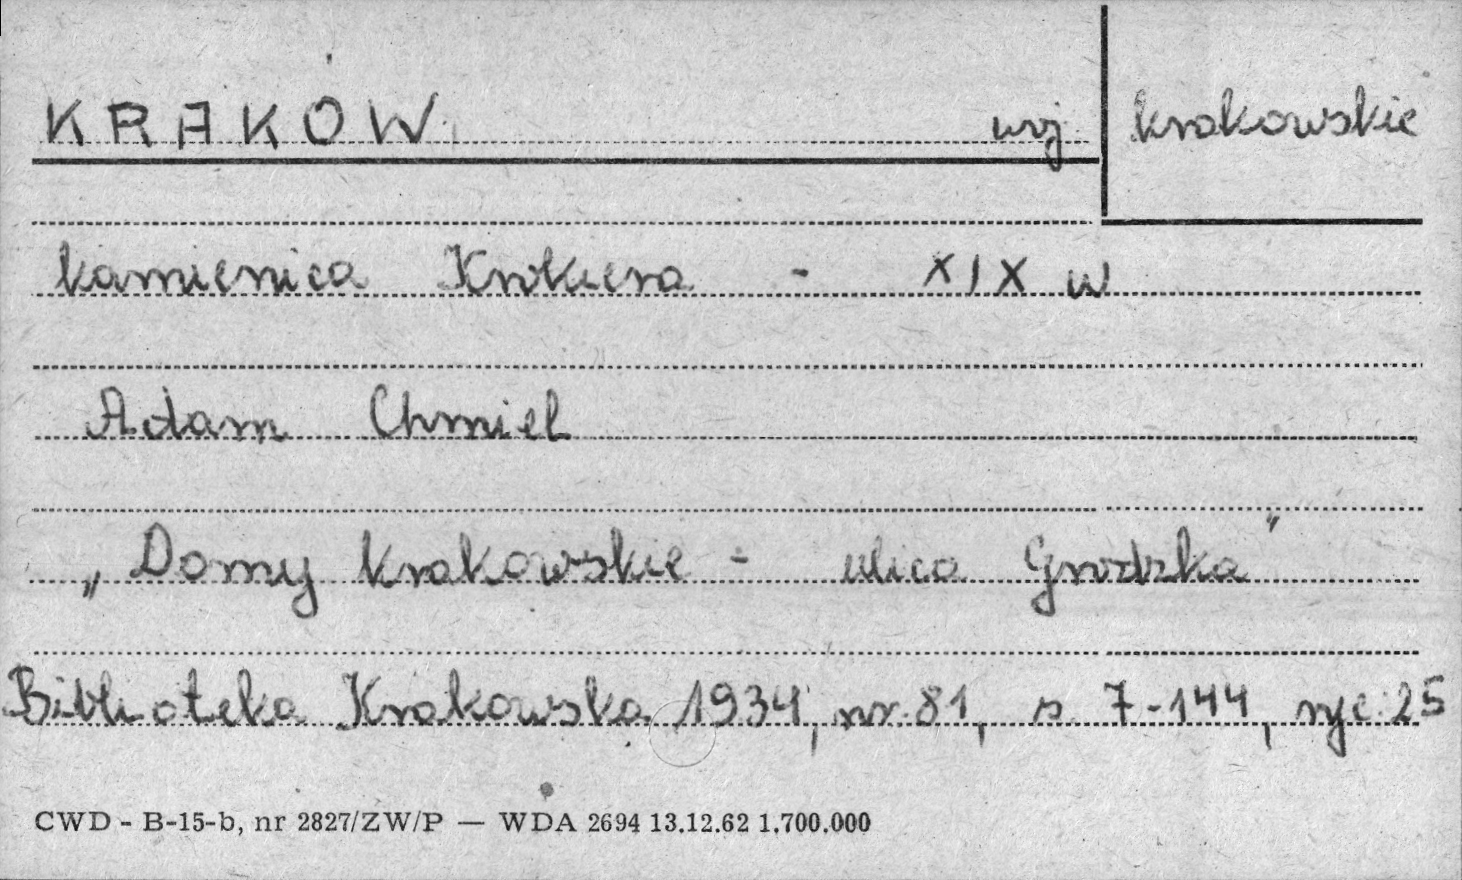 KRAKÓW woj. krakowskie
kamienica Krokiera - XIX w
Adam Chmiel
„Domy krakowskie - ulica Grodzka"
Biblioteka Krakowska 1934, nr. 81, s. 7-144, ryc. 25
CWD - B-15-b, nr 2827/ZW/P — WDA 2694 13.12.62 1.700.000